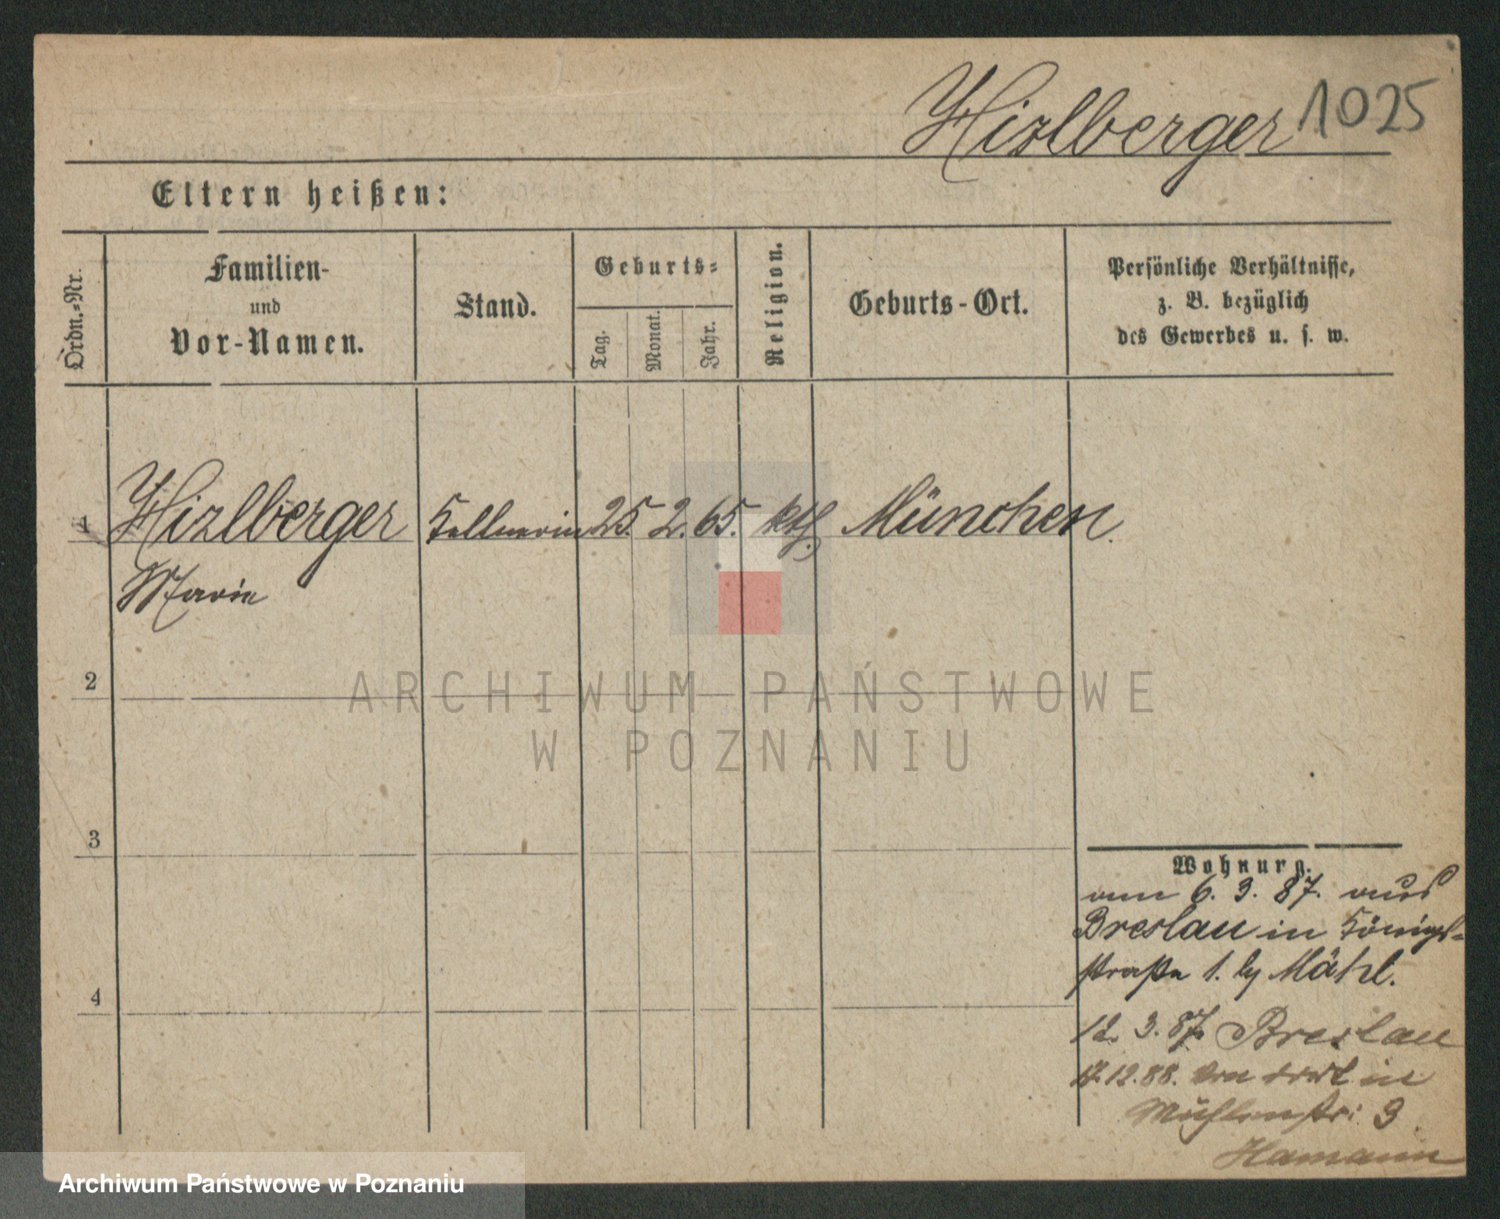 Hizlberger 1025
Eltern heißen:
Ordn.-Nr.
Familien-
und
Vor-Namen.
Stand.
Geburts-
Tag.
Monat.
Jahr.
Religion.
Geburts-Ort.
Persönliche Verhältnisse,
z. B. bezüglich
des Gewerbes u. s. w.
1 Hizlberger Kellnerin 25. 2. 65. kth. München.
Marie
2
ARCHIWUM PAŃSTWOWE
W POZNANIU
3
Wohnung.
am 6. 3. 87. aus
Breslau in Königs-
straße 1. by Mähl.
12. 3. 87. Breslau
17.12.88. von dort in
Mühlenstr: 3
Hamann
4
Archiwum Państwowe w Poznaniu